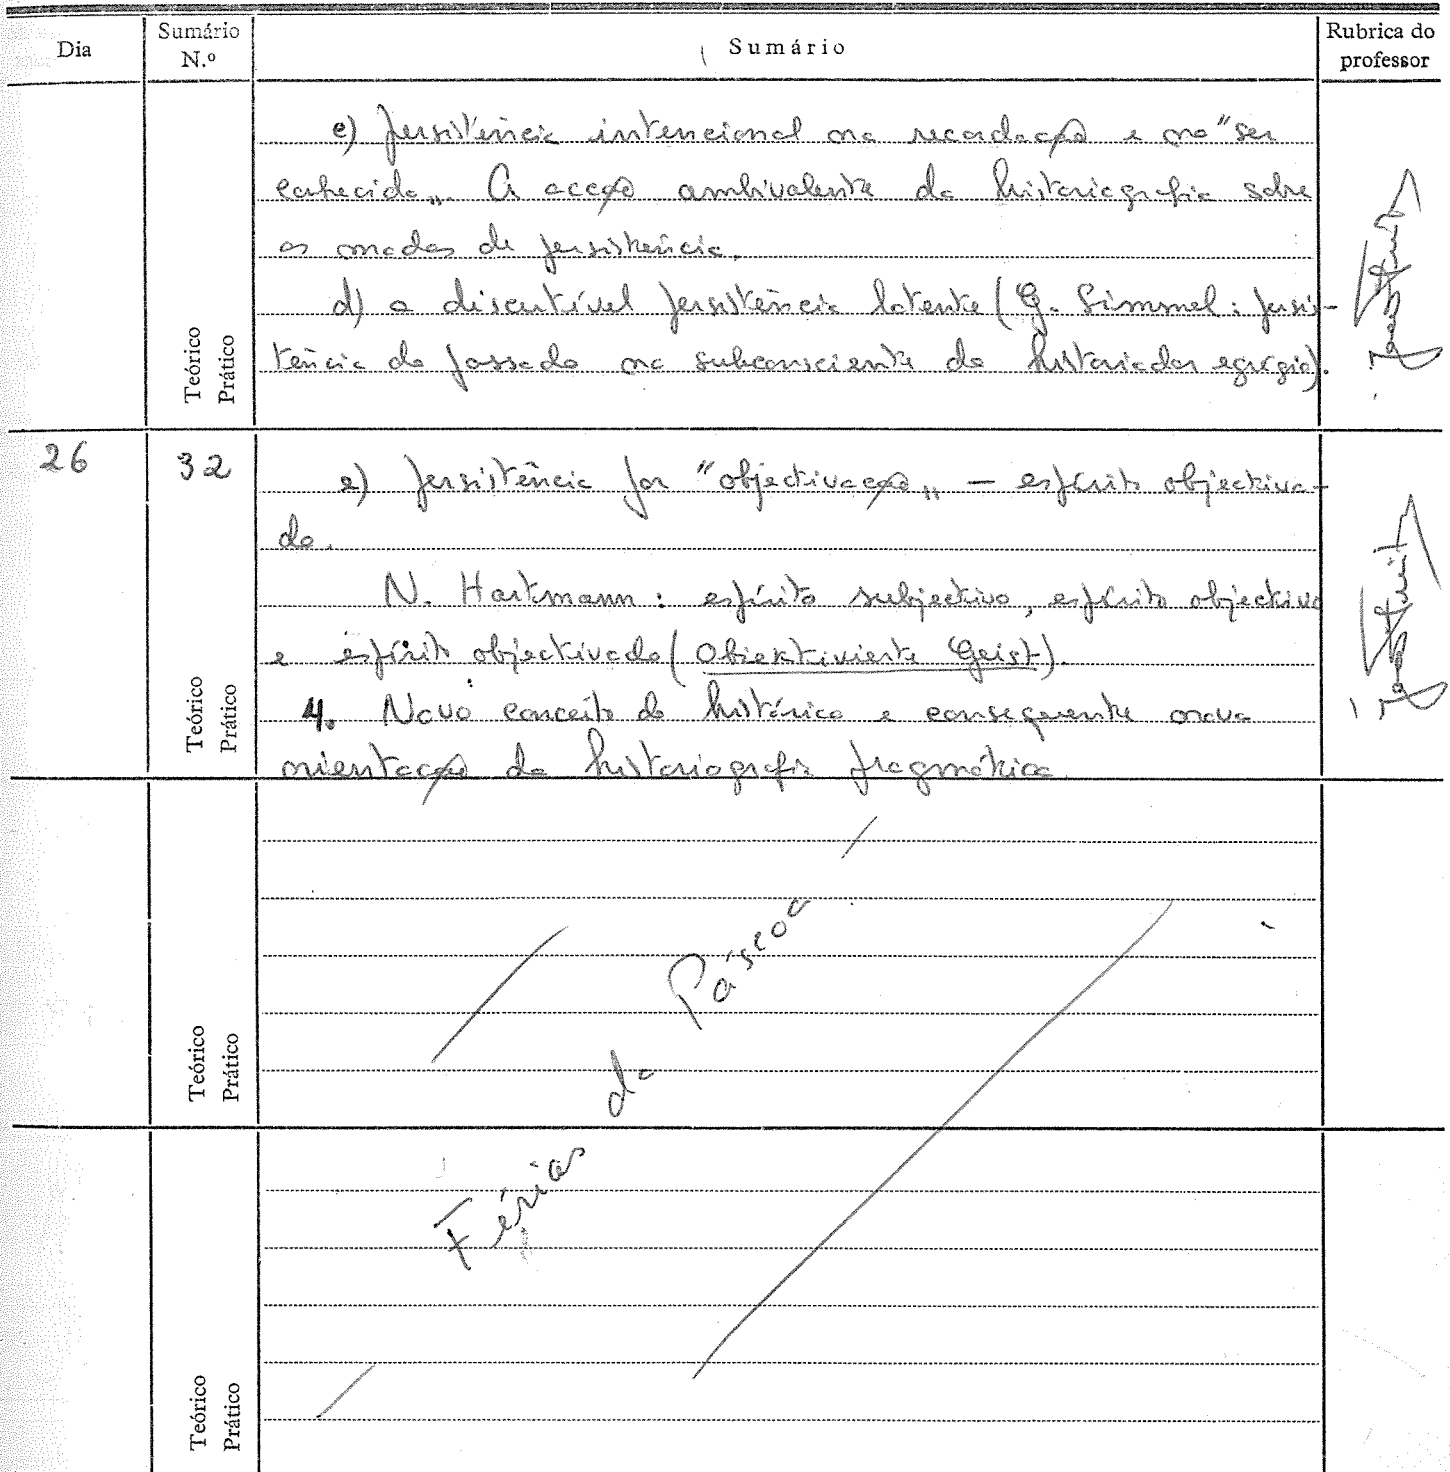 Dia
Sumário N.º
Sumário
Rubrica do professor
c) persistência intencional na recordação e no "ser
conhecido„. A acção ambivalente da historiografia sobre
os modos de persistência.
d) a discutível persistência latente (G. Simmel: persis-
tência do passado no subconsciente do historiador egrégio).
Teórico
Prático
26
32
e) persistência por "objectivação„ — espírito objectiva-
do.
N. Hartmann: espírito subjectivo, espírito objectivo
e espírito objectivado (Obiektivierte Geist).
4. Novo conceito do histórico e consequente nova
orientação da historiografia pragmática
Teórico
Prático
Férias da Páscoa
Teórico
Prático
Teórico
Prático